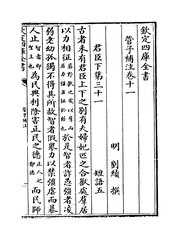 欽定四庫全書
管子補注卷十一
明 劉績 撰
君臣下第三十一 短語五
古者未有君臣上下之别有夫婦妃匹之合獸處羣居
以力相征 於是智者詐愚强者凌
弱老幼孤獨不得其所故智者假衆力以禁强虐而暴
人止 為民興利除害正民之德 而民師